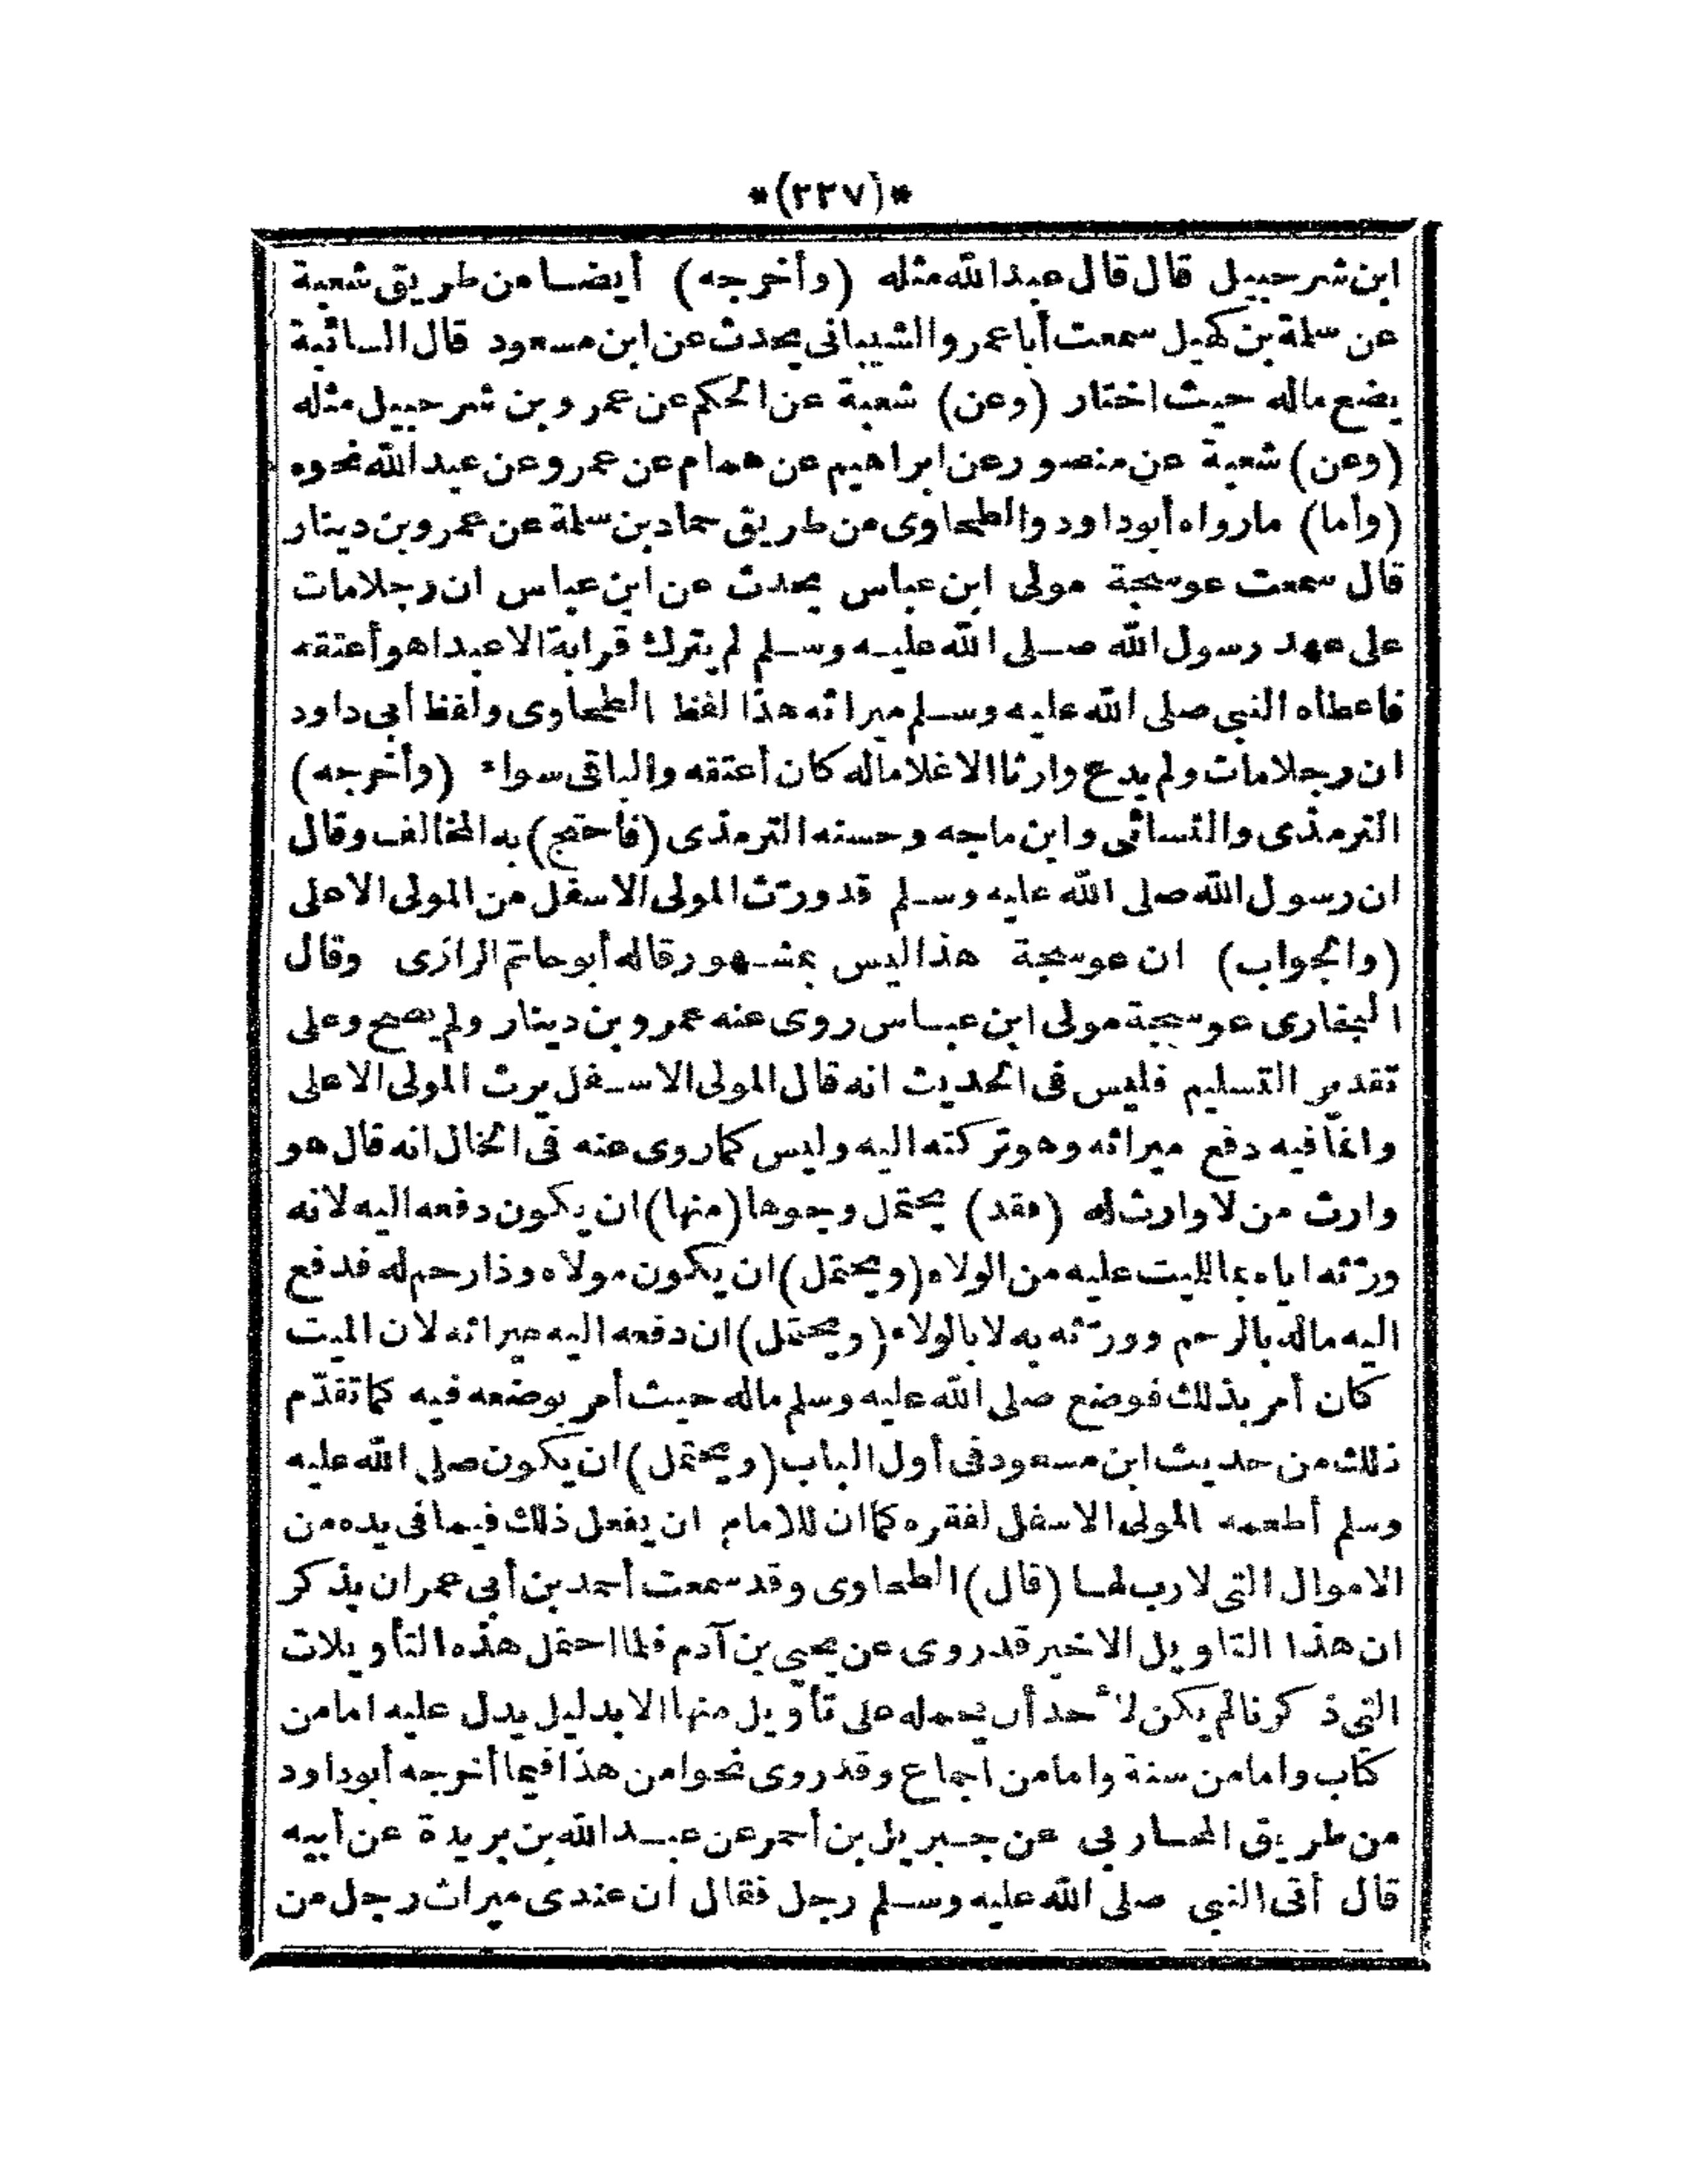 *(٢٣٧)*
ابن شرحبيل قال قال عبد الله مثله (وأخرجه) أيضا من طريق شعبة
عن سلمة بن كهيل سمعت أبا عمرو الشيباني يحدث عن ابن مسعود قال السائبة
يضع ماله حيث اختار (وعن) شعبة عن الحكم عن عمرو بن شرحبيل مثله
(وعن) شعبة عن منصور عن ابراهيم عن همام عن عمرو عن عبد الله نحوه
(وأما) ما رواه أبو داود والطحاوى من طريق حماد بن سلمة عن عمرو بن دينار
قال سمعت عوسجة مولى ابن عباس يحدث عن ابن عباس ان رجلا مات
على عهد رسول الله صلى الله عليه وسلم لم يترك قرابة الا عبدا هو أعتقه
فاعطاه النبي صلى الله عليه وسلم ميراثه هذا لفظ الطحاوى ولفظ أبى داود
ان رجلا مات ولم يدع وارثا الا غلاما له كان أعتقه والباقى سواء (وأخرجه)
الترمذى والنسائى وابن ماجه وحسنه الترمذى (فاحتج) به المخالف وقال
ان رسول الله صلى الله عليه وسلم قد ورّث المولى الاسفل من المولى الاعلى
(والجواب) ان عوسجة هذا ليس بمشهور قاله أبو حاتم الرازى وقال
البخارى عوسجة مولى ابن عباس روى عنه عمرو بن دينار ولم يصح وعلى
تقدير التسليم فليس فى الحديث انه قال المولى الاسفل يرث المولى الاعلى
وانما فيه دفع ميراثه وهو تركته اليه وليس كما روى عنه فى الخال انه قال هو
وارث من لا وارث له (فقد) يحتمل وجوها (منها) ان يكون دفعه اليه لانه
ورّثه اياه بما للميت عليه من الولاء (ويحتمل) ان يكون مولاه وذا رحم له فدفع
اليه ماله بالرحم وورّثه به لا بالولاء (ويحتمل) ان دفعه اليه ميراثه لان الميت
كان أمر بذلك فوضع صلى الله عليه وسلم ماله حيث أمر بوضعه فيه كما تقدّم
ذلك من حديث ابن مسعود فى أول الباب (ويحتمل) ان يكون صلى الله عليه
وسلم أطعمه المولى الاسفل لفقره كما ان للامام ان يفعل ذلك فيما فى يده من
الاموال التى لا رب لها (قال) الطحاوى وقد سمعت أحمد بن أبى عمران يذكر
ان هذا التاويل الاخير قد روى عن يحيي بن آدم فلما احتمل هذه التأويلات
التي ذكرنا لم يكن لأحد أن يحمله على تأويل منها الا بدليل يدل عليه اما من
كتاب واما من سنة واما من اجماع وقد روى نحوا من هذا فيما أخرجه أبو داود
من طريق المحاربى عن جبريل بن أحمر عن عبد الله بن بريدة عن أبيه
قال أتى النبي صلى الله عليه وسلم رجل فقال ان عندى ميراث رجل من